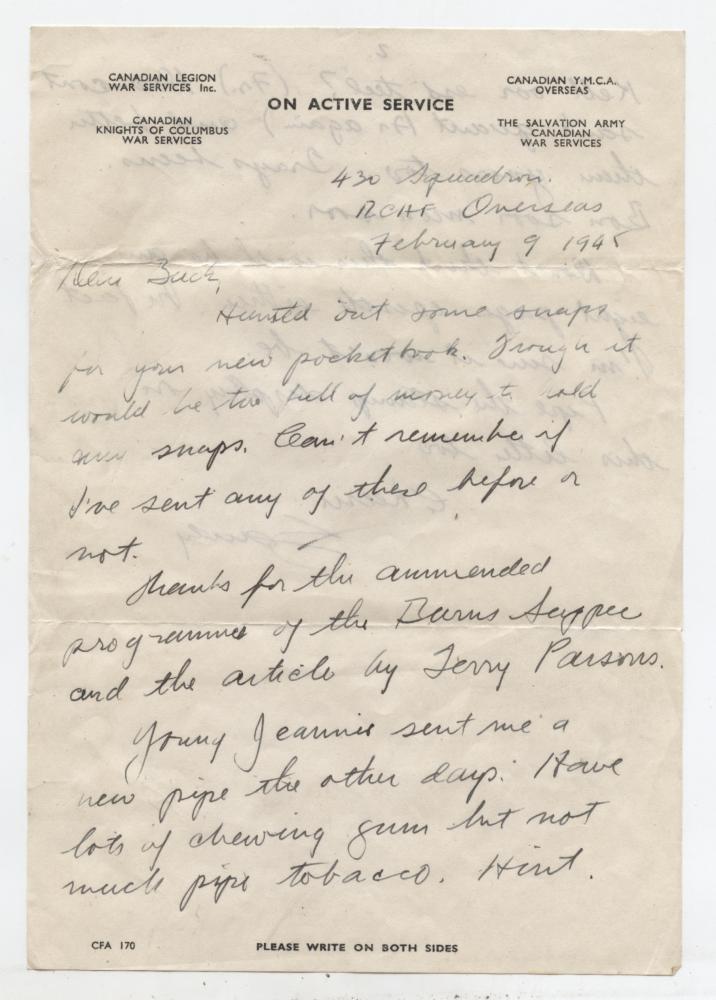 CANADIAN LEGION
WAR SERVICES Inc.
CANADIAN
KNIGHTS OF COLUMBUS
WAR SERVICES
ON ACTIVE SERVICE
CANADIAN Y.M.C.A.
OVERSEAS
THE SALVATION ARMY
CANADIAN
WAR SERVICES
430 Squadron.
RCAF Overseas
February 9 1945
Dear Buck,
Hunted out some snaps
for your new pocketbook. Though it
would be too full of money to hold
any snaps. Can't remember if
I've sent any of these before or
not.
Thanks for the ammended
programme of the Burns Supper
and the article by Terry Parsons.
Young Jeannie sent me a
new pipe the other day. Have
lots of chewing gum but not
much pipe tobacco. Hint.
CFA 170
PLEASE WRITE ON BOTH SIDES